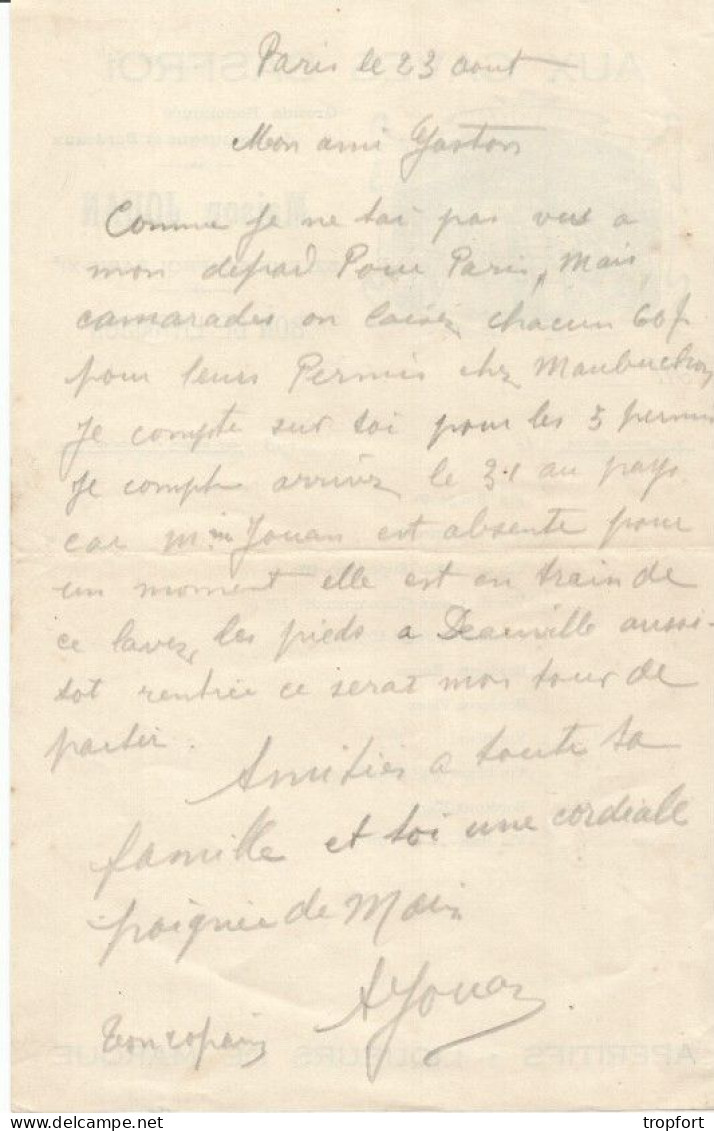 Paris le 23 aout
Mon ami Gaston
Comme Je ne tai pas vus a
mon depad Pour Paris, Mais,
camarades on laisez chacun 60f
pour leurs Permis chez Maubuchon
Je compte sur toi pour les 3 permis
Je compte arrivez le 31 au pays.
car Mme Jouan est absente pour
un moment elle est en train de
ce lavez, les pieds a Deauville aussi-
tot rentrée ce serat mon tour de
partir.
Amities a toute ta
famille et toi une cordiale
poignée de Main
AJouan
Ton copain
tropfort